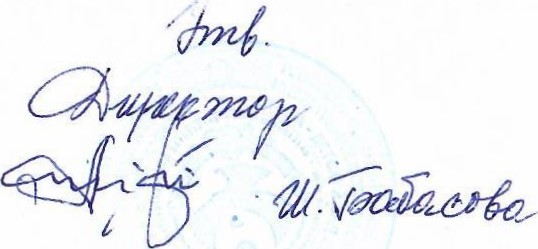 Утв.
Директор
Ш. Бабасова